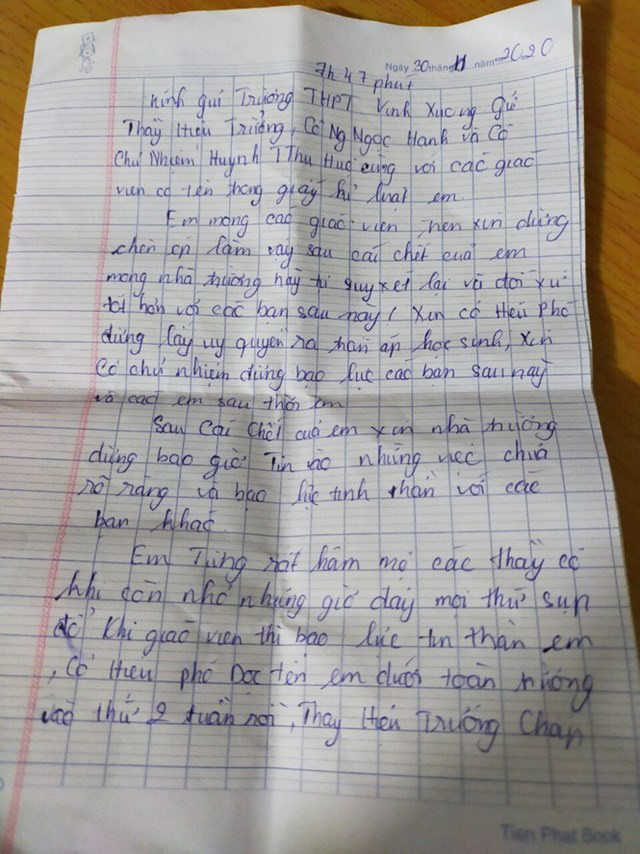 Ngày 30 tháng 11 năm 2020
7h 47 phút
Kính gửi Trường THPT Vĩnh Xương Gửi
Thầy Hiệu Trưởng, Cô Ng Ngọc Hạnh và Cô
Chủ Nhiệm Huỳnh T Thu Huệ cùng với các giáo
viên có tên trong giấy kỉ luật em
Em mong các giáo viên nên xin đừng
chèn ép lắm vậy sau cái chết của em
mong nhà trường hãy quyết lại và đối xử
tốt hơn với các bạn sau này! Xin cô Hiệu Phó
đừng lấy uy quyền ra trấn áp học sinh, xin
Cô chủ nhiệm đừng bạo lực các bạn sau này
và các em sau thời em
Sau Cái Chết của em xin nhà trường
đừng bao giờ Tin vào những việc chưa
rõ ràng và bạo lực tinh thần với các
bạn khác.
Em Từng rất hâm mộ các thầy cô
khi còn nhỏ những giờ đây mọi thứ sụp
đổ Khi giáo viên thì bạo lực tin thần em
, Cô Hiệu phó Đọc tên em dưới toàn trường
vào thứ 2 tuần rồi, Thầy Hiệu Trưởng Chấp
Tien Phat Book